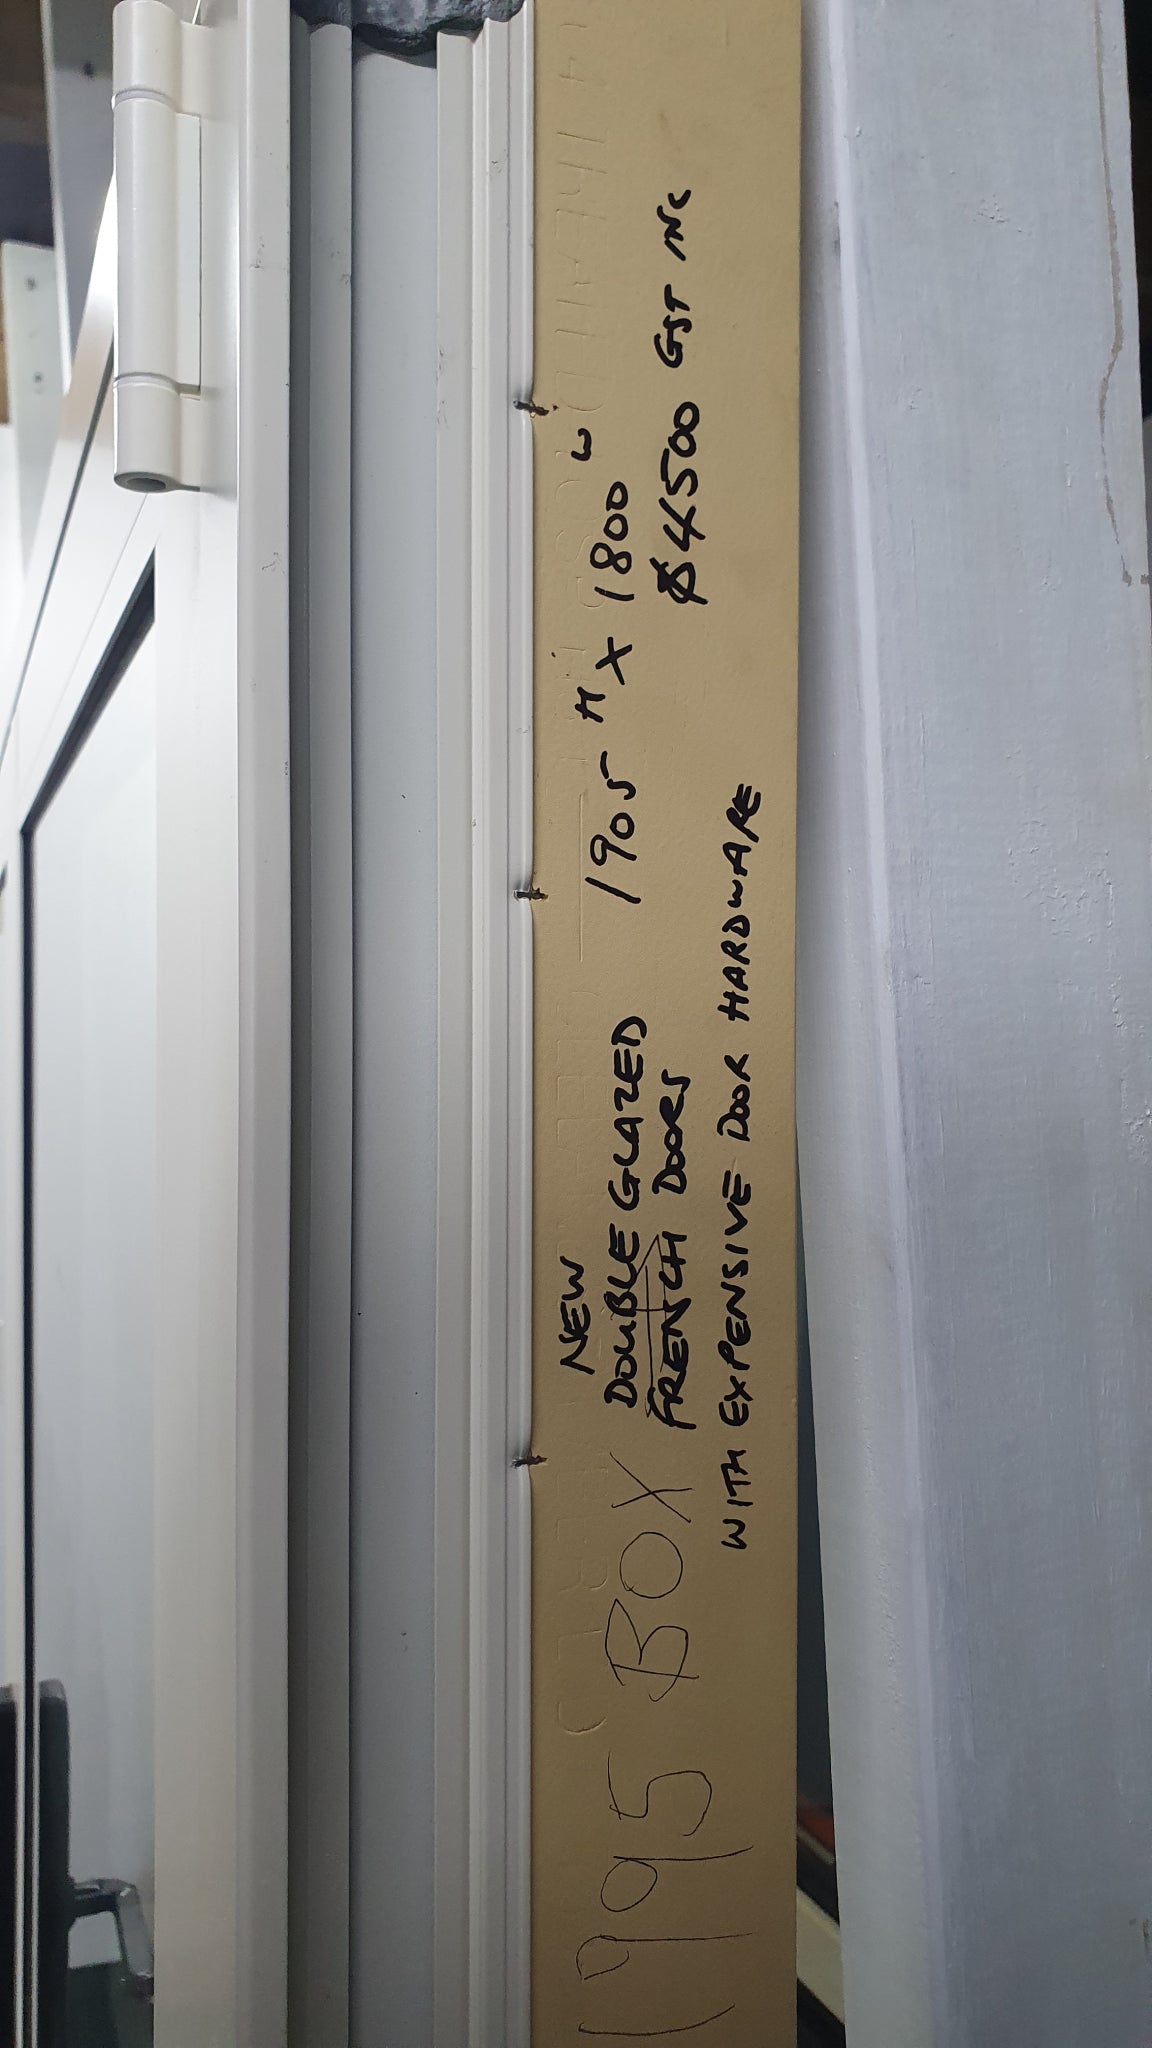 1995 BOX
NEW
DOUBLE GLAZED
FRENCH DOORS
WITH EXPENSIVE DOOR HARDWARE
1905 H X 1800 W
$4500 GST INC